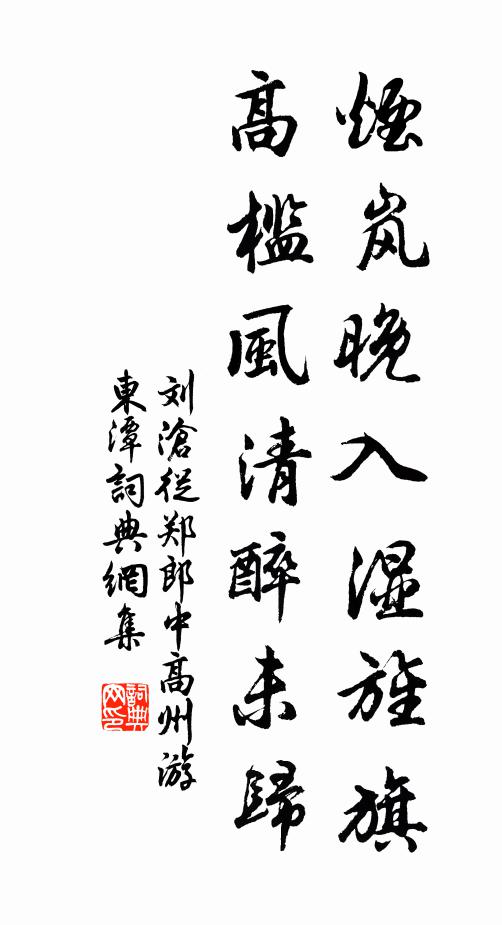 煙岚晚入湿旌旗
高檻風清醉未歸
刘滄從郑郎中高州游
東潭詞典網集
詞典
网印